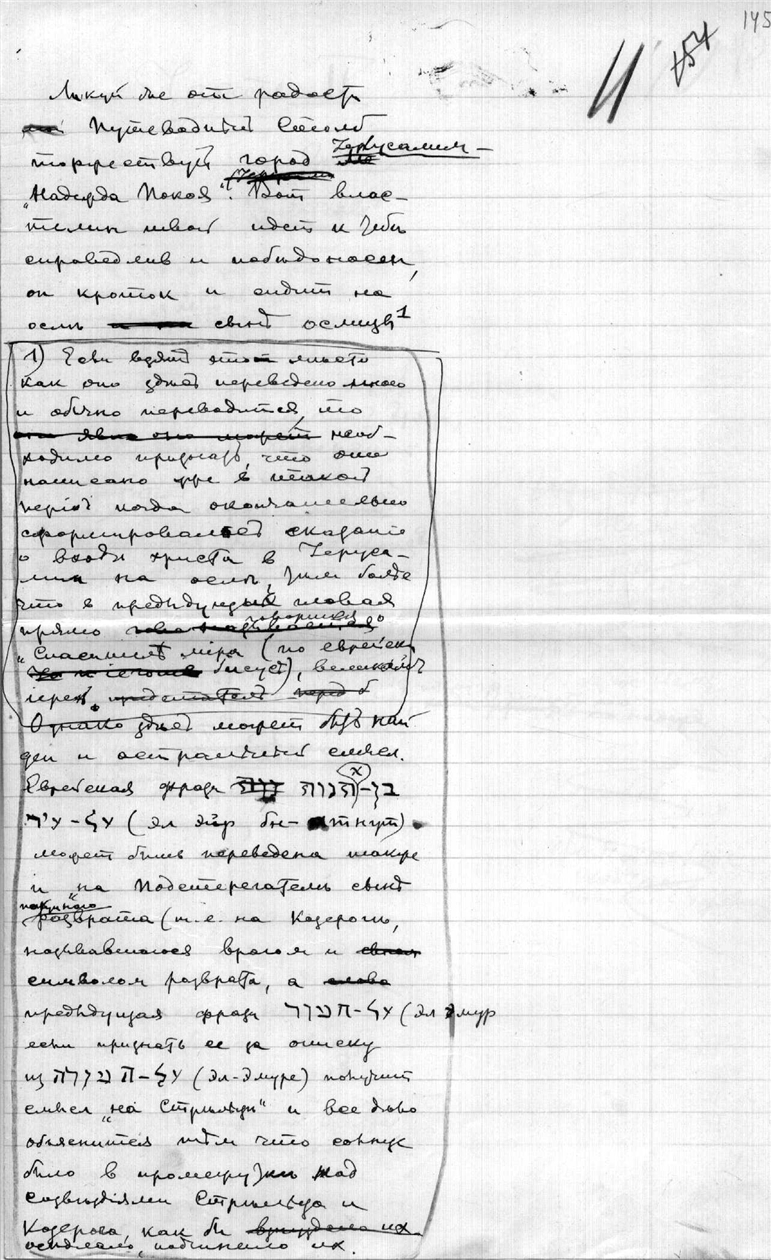 145
154
Ликуй же от радости
Путеводный Столб
торжествуй город Иерусалим –
„Надежда Покоя“! Вот влас-
телин твой идет к тебѣ
справедлив и победоносен,
он кроток и сидит на
ослѣ сынѣ ослицы 1
1) Если взять это место
как оно здѣсь переведено мною
и обычно переводится, то
необ-
ходимо признать, что оно
написано уже в такой
перiод когда окончательно
сказанiе
о входѣ Христа в Иеруса-
лим на ослѣ, тѣм болѣе
что в предыдущих главах
прямо говорится о
„Спасителѣ мiра (по еврейски
Iисус), великом
iереѣ.
Однако здѣсь может быть най
ден и астральный смысл.
Еврейская фраза בן-
על-עיר (эл эйр бн-атнут)
может быть переведена также
и „на Подстерегателѣ сынѣ
разврата (т.е. на Козерогѣ,
называвшемся врагом и
символом разврата, а
предыдущая фраза על-חמור (эл эмур
если признать ее за описку
из על-ה (эл-эмурѣ) получит
смысл „на Стрѣльцѣ“ и все дѣло
объяснится тѣм что солнце
было в промежутке над
созвѣздиями Стрѣльца и
Козерога, как бы
осѣдлало, подчинило их.